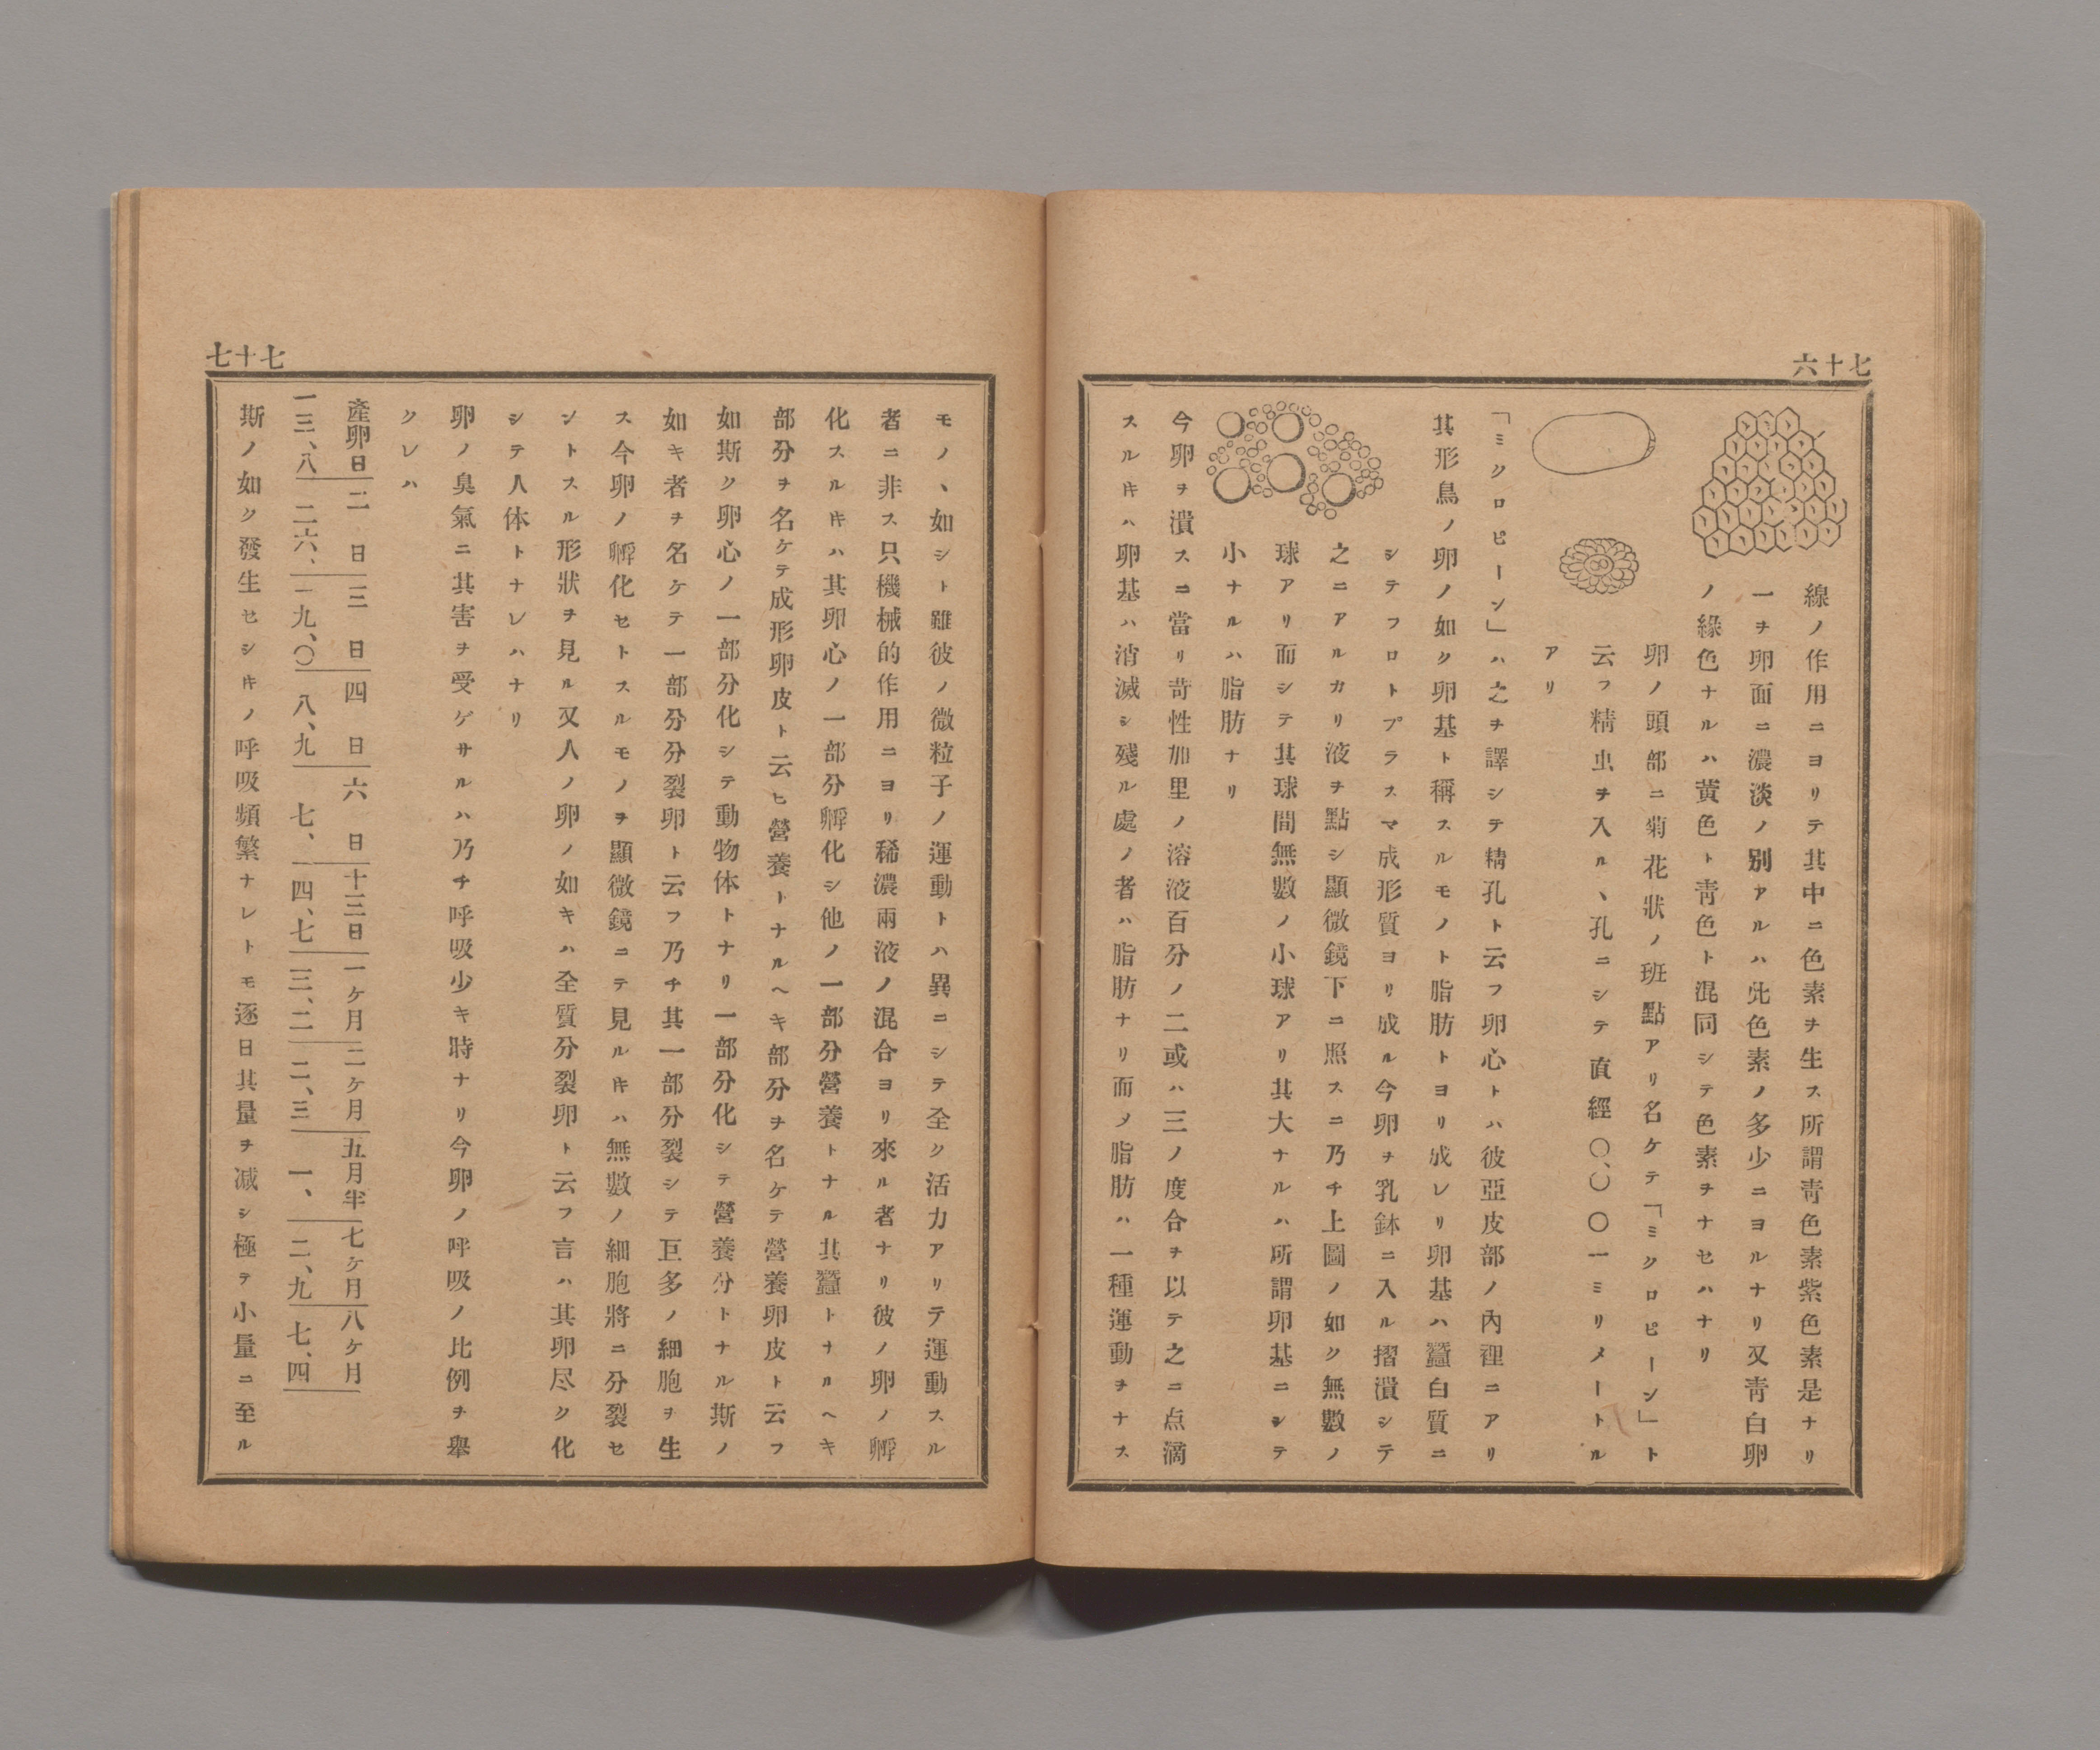 七十六
線ノ作用ニヨリテ其中ニ色素ヲ生ス所謂青色素紫色素是ナリ
一ヲ卵面ニ濃淡ノ別アルハ此色素ノ多少ニヨルナリ又青白卵
ノ緑色ナルハ黄色ト靑色ト混同シテ色素ヲナセハナリ
卵ノ頭部ニ菊花狀ノ班點アリ名ケテ「ミクロピーン」ト
云フ精虫ヲ入ルヽ孔ニシテ直經〇、〇〇一ミリメートル
アリ
「ミクロピーン」ハ之ヲ譯シテ精孔ト云フ卵心トハ彼亞皮部ノ內裡ニアリ
其形鳥ノ卵ノ如ク卵基ト稱スルモノト脂肪トヨリ成レリ卵基ハ蠶白質ニ
シテフロトプラスマ成形質ヨリ成ル今卵ヲ乳鉢ニ入ル摺潰シテ
之ニアルカリ液ヲ點シ顯微鏡下ニ照スニ乃チ上圖ノ如ク無數ノ
球アリ而シテ其球間無數ノ小球アリ其大ナルハ所謂卵基ニシテ
小ナルハ脂肪ナリ
今卵ヲ潰スニ當リ苛性加里ノ溶液百分ノ二或ハ三ノ度合ヲ以テ之ニ点滴
スルキハ卵基ハ消滅シ殘ル處ノ者ハ脂肪ナリ而メ脂肪ハ一種運動ヲナス
七十七
モノヽ如シト雖彼ノ微粒子ノ運動トハ異ニシテ全ク活力アリテ運動スル
者ニ非ス只機械的作用ニヨリ稀濃兩液ノ混合ヨリ來ル者ナリ彼ノ卵ノ孵
化スルキハ其卵心ノ一部分孵化シ他ノ一部分營養トナル其蠶トナルヘキ
部分ヲ名ケテ成形卵皮ト云ヒ營養トナルヘキ部分ヲ名ケテ營養卵皮ト云フ
如斯ク卵心ノ一部分化シテ動物体トナリ一部分化シテ營養分トナル斯ノ
如キ者ヲ名ケテ一部分分裂卵ト云フ乃チ其一部分裂シテ巨多ノ細胞ヲ生
ス今卵ノ孵化セトスルモノヲ顯微鏡ニテ見ルキハ無數ノ細胞將ニ分裂セ
ントスル形狀ヲ見ル又人ノ卵ノ如キハ全質分裂卵ト云フ言ハ其卵尽ク化
シテ人体トナレハナリ
卵ノ臭氣ニ其害ヲ受ゲサルハ乃チ呼吸少キ時ナリ今卵ノ呼吸ノ比例ヲ擧
クレハ
產卵日 二日 三日 四日 六日 十三日 一ヶ月 二ヶ月 五月半 七ヶ月 八ヶ月
一三、八 二六、一 九、〇 八、九 七、一 四、七 三、二 二、三 一、 二、九 七、四
斯ノ如ク發生セシキノ呼吸頻繁ナレトモ逐日其量ヲ減シ極テ小量ニ至ル